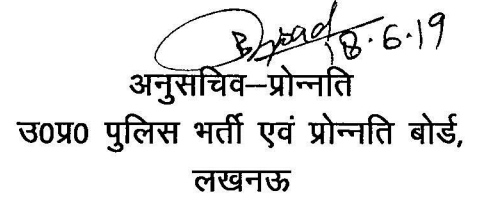 18.6.19
अनुसचिव–प्रोन्नति
उ0प्र0 पुलिस भर्ती एवं प्रोन्नति बोर्ड,
लखनऊ